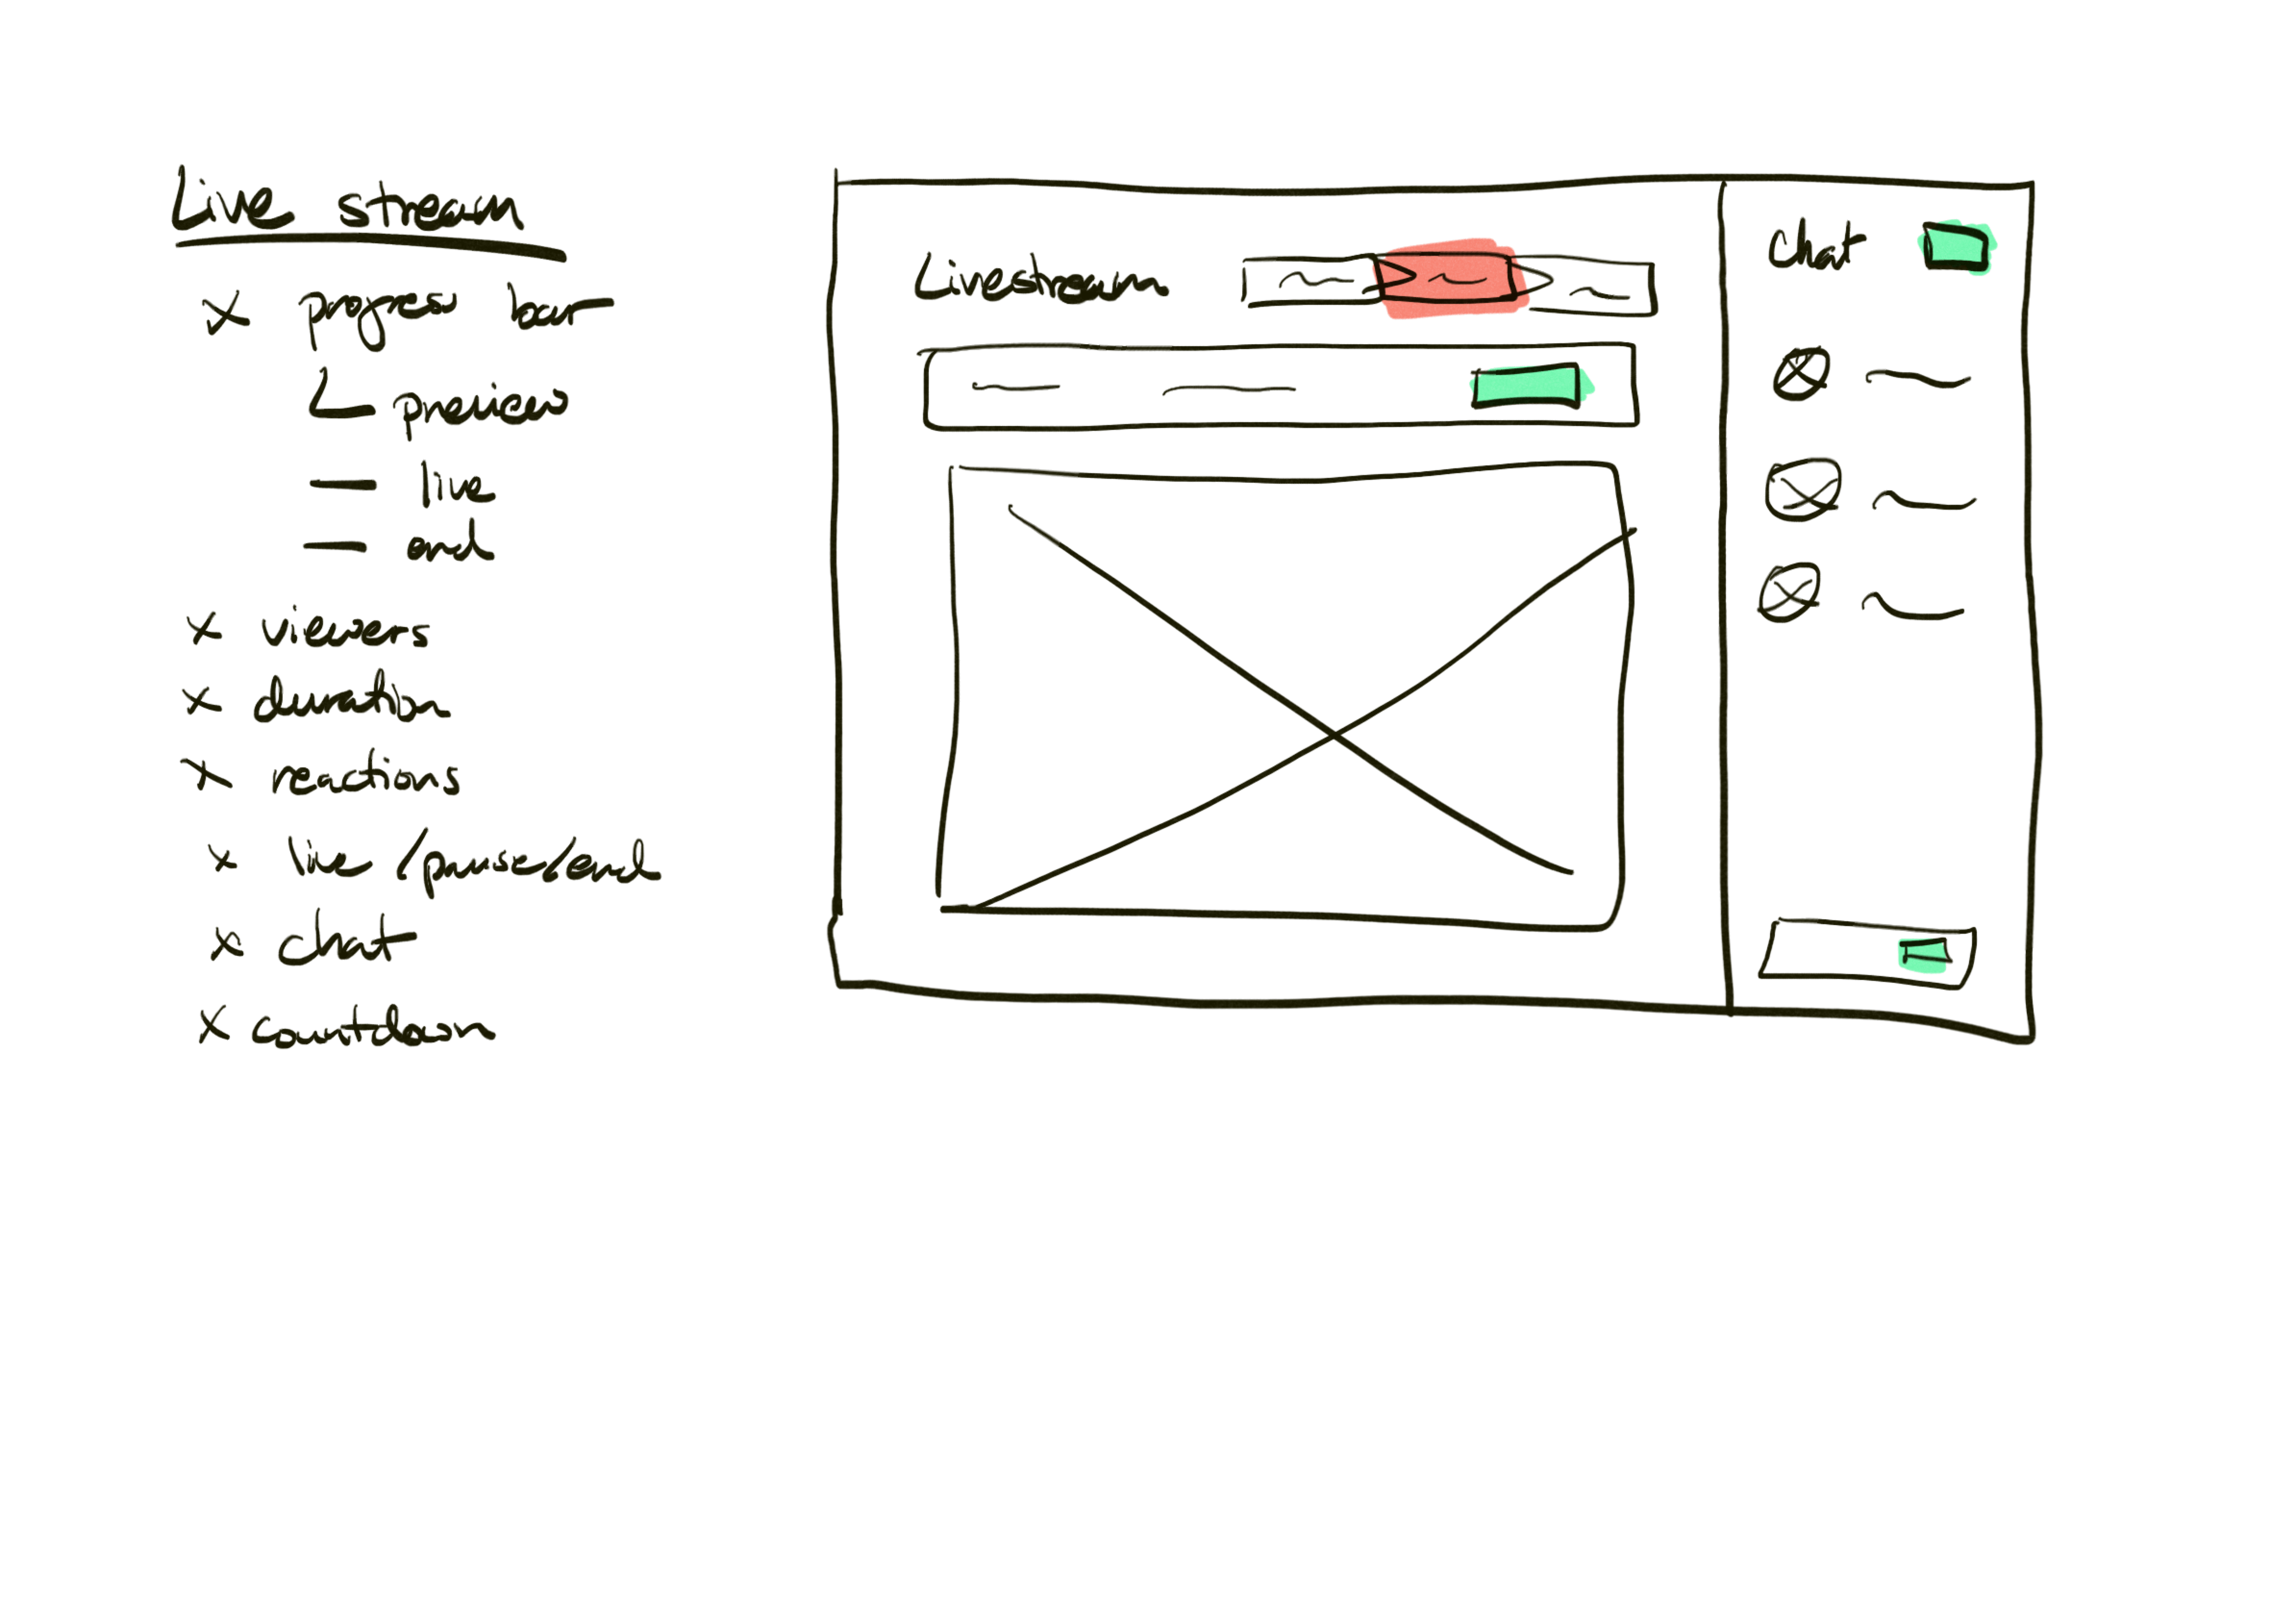 Live stream
x progress bar
preview
— live
— end
x viewers
x duration
x reactions
x live/pause/end
x chat
x countdown
Livestream
Chat